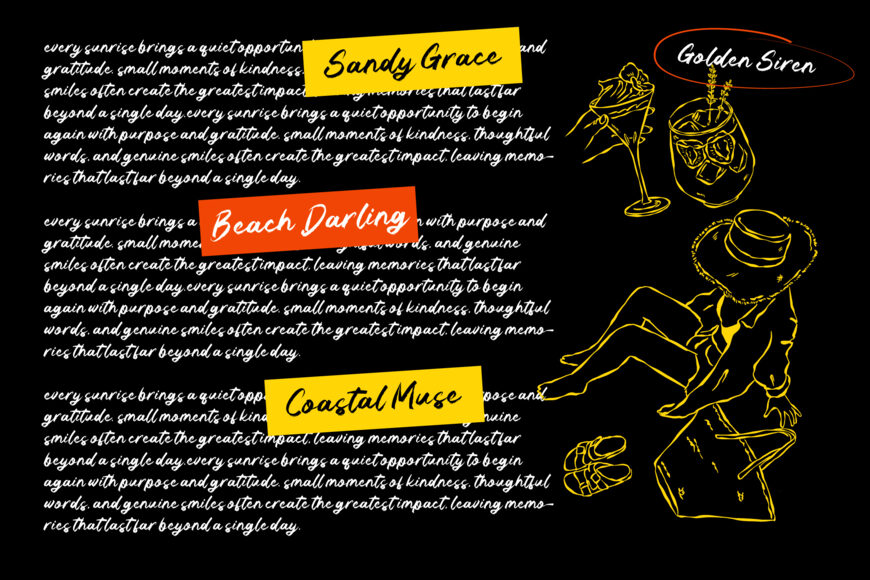 every sunrise brings a quiet Sandy Grace and
gratitude. small moments of kindness,
smiles often create the greatest memories that last far
beyond a single day.every sunrise brings a quiet opportunity to begin
again with purpose and gratitude. small moments of kindness, thoughtful
words, and genuine smiles often create the greatest impact, leaving memo-
ries that last far beyond a single day.
Golden Siren
every sunrise brings a Beach Darling with purpose and
gratitude. small words, and genuine
smiles often create the greatest impact, leaving memories that last far
beyond a single day.every sunrise brings a quiet opportunity to begin
again with purpose and gratitude. small moments of kindness, thoughtful
words, and genuine smiles often create the greatest impact, leaving memo-
ries that last far beyond a single day.
every sunrise brings a quiet Coastal Muse and
gratitude. small moments of
smiles often create the greatest impact, leaving memories that last far
beyond a single day.every sunrise brings a quiet opportunity to begin
again with purpose and gratitude. small moments of kindness, thoughtful
words, and genuine smiles often create the greatest impact, leaving memo-
ries that last far beyond a single day.